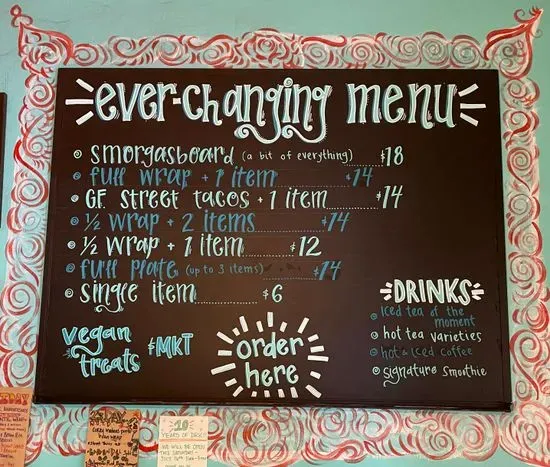 ever-changing menu
smorgasboard (a bit of everything) $18
full wrap + 1 item $14
GF street tacos + 1 item $14
½ wrap + 2 items $14
½ wrap + 1 item $12
full plate (up to 3 items) $14
single item $6
vegan treats $MKT
order here
DRINKS
iced tea of the moment
hot tea varieties
hot & iced coffee
signature smoothie
10
YEARS OF
WE WILL BE